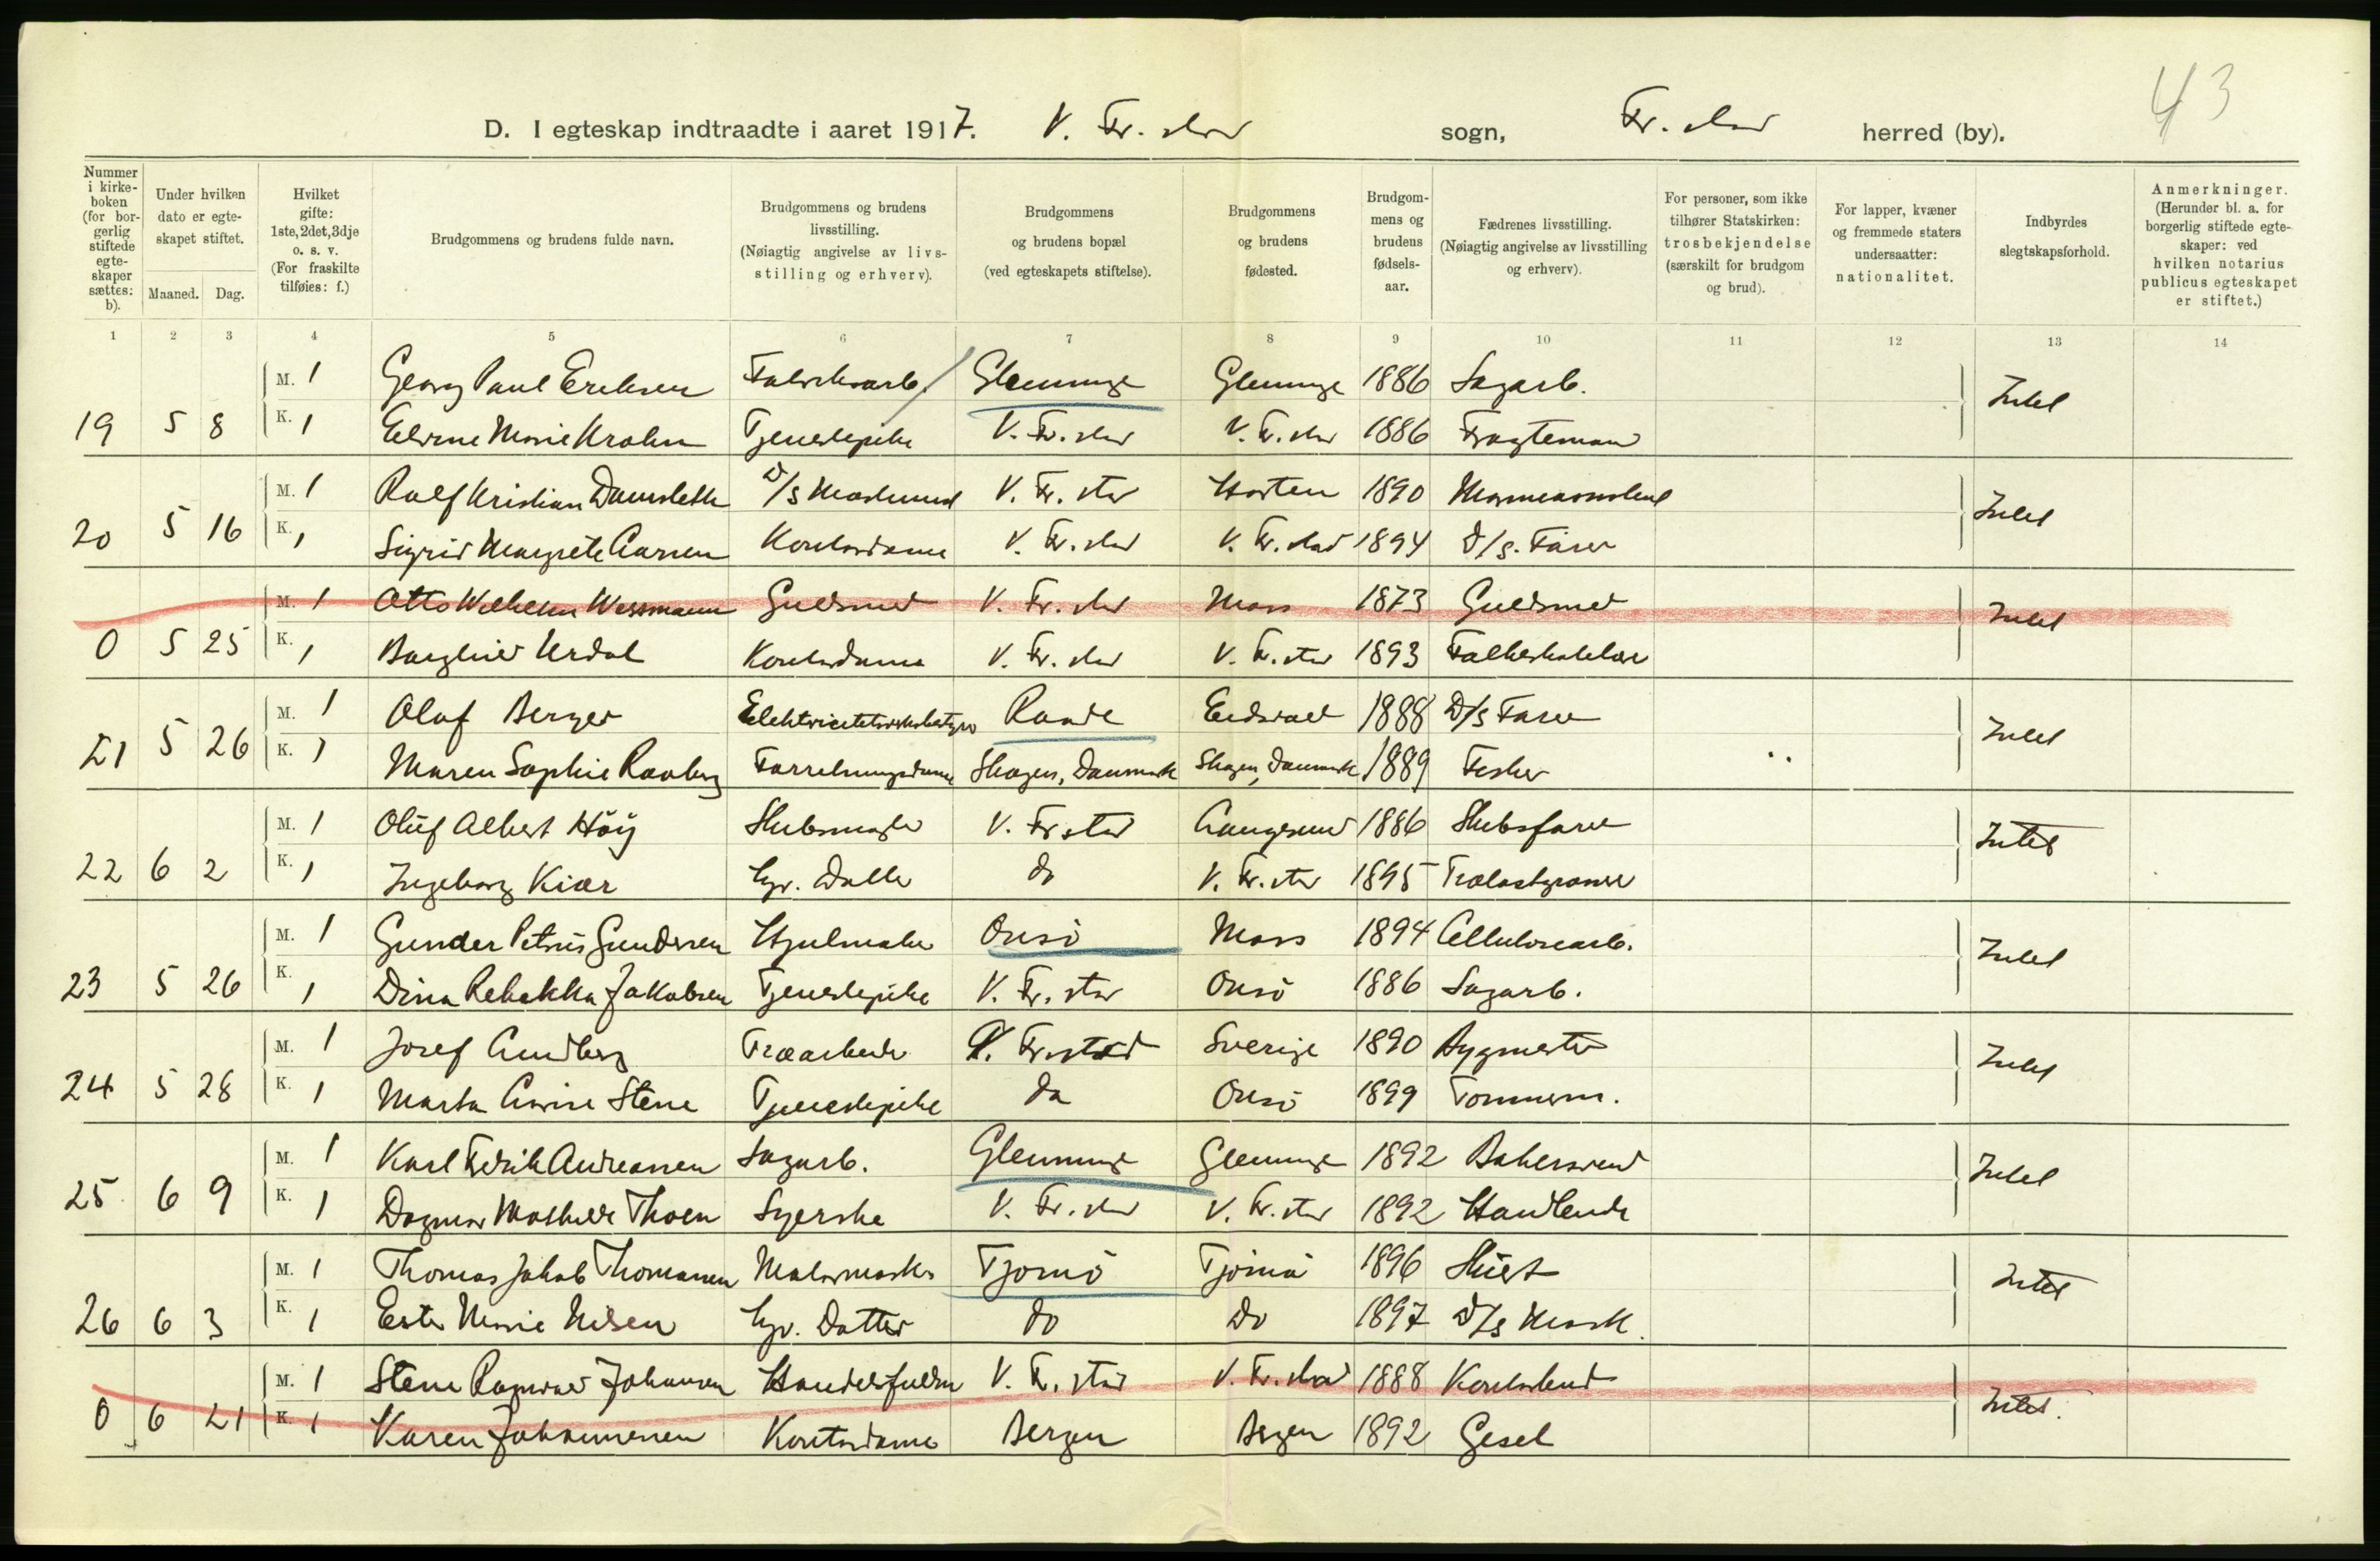 43
D. I egteskap indtraadte i aaret 1917. V. Fr. stad sogn, Fr. stad herred (by).
Nummer i kirkeboken (for borgerlig stiftede egteskaper sættes: b).
Under hvilken dato er egteskapet stiftet.
Maaned. Dag.
Hvilket gifte: 1ste, 2det, 3dje o. s. v. (For fraskilte tilføies: f.)
Brudgommens og brudens fulde navn.
Brudgommens og brudens livsstilling. (Nøiagtig angivelse av livsstilling og erhverv).
Brudgommens og brudens bopæl (ved egteskapets stiftelse).
Brudgommens og brudens fødested.
Brudgommens og brudens fødselsaar.
Fædrenes livsstilling. (Nøiagtig angivelse av livsstilling og erhverv).
For personer, som ikke tilhører Statskirken: trosbekjendelse (særskilt for brudgom og brud).
For lapper, kvæner og fremmede staters undersaatter: nationalitet.
Indbyrdes slegtskapsforhold.
Anmerkninger. (Herunder bl. a. for borgerlig stiftede egteskaper: ved hvilken notarius publicus egteskapet er stiftet.)
1 2 3 4 5 6 7 8 9 10 11 12 13 14
M. 1 Georg Paul Eriksen Fabrikarb. Glemminge Glemminge 1886 Sagarb. Intet
19 5 8 K. 1 Marie Krohn Tjenestepike V. Fr. stad V. Fr. stad 1886 Fragtemand
M. 1 Rolf Kristian Damsleth D/s Maskinist V. Fr. stad Horten 1890 Intet
20 5 16 K. 1 Sigrid Margrete Larsen Kontordame V. Fr. stad V. Fr. stad 1894 D/s. Fører
M. 1 Otto Wilhelm Wessmann Guldsmed V. Fr. stad Moss 1873 Guldsmed Intet
0 5 25 K. 1 Borghild Urdal Kontordame V. Fr. stad V. Fr. stad 1893 Folkeskolelærer
M. 1 Olaf Berger Raade Eidsvold 1888 D/s Fører Intet
21 5 26 K. 1 Maren Sophie Forretningsdame Skagen, Danmark Skagen, Danmark 1889 Fisker
M. 1 Oluf Albert Höy Skibsmegler V. Fr stad Langesund 1886 Skibsfører Intet
22 6 2 K. 1 Ingeborg Kiær Hjv. Datter do V. Fr. stad 1895 Trælastgrosser
M. 1 Gunder Petrus Gundersen Hjulmaker Onsö Moss 1894 Cellulosearb. Intet
23 5 26 K. 1 Dina Rebekka Jakobsen Tjenestepike V. Fr. stad Onsö 1886 Sagarb.
M. 1 Josef Lundberg Træarbeider V. Fr. stad Sverige 1890 Bygmester Intet
24 5 28 K. 1 Marta Stene Tjenestepike do Onsö 1899 Tömmerm.
M. 1 Karl Fredrik Andreassen Sagarb. Glemminge Glemminge 1892 Bakersvend Intet
25 6 9 K. 1 Dagmar Mathilde Thoen Syerske V. Fr. stad V. Fr. stad 1892 Handlende
M. 1 Thomas Jakob Thomassen Motormaskr Tjömö Tjömö 1896 Intet
26 6 3 K. 1 Ester Marie Nilsen Hjv. Datter do Do 1897 D/s Mask.
M. 1 Stene Ragnvald Johansen V. Fr. stad V. Fr. stad 1888 Kontorbud Intet.
0 6 21 K. 1 Karen Johannesen Kontordame Bergen Bergen 1892 Gesel